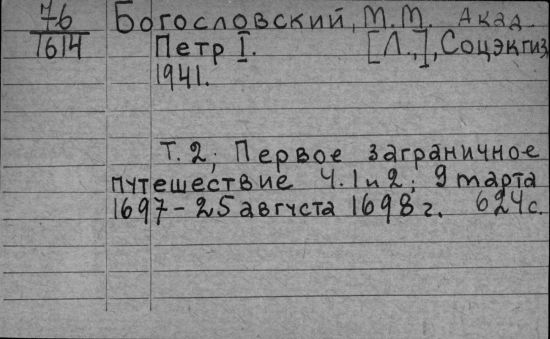 76 Богословский, М.М. Акад.
1614 Петр I. [Л.,], Соцэкгиз
1941.
Т. 2; Первое заграничное
путешествие Ч. 1 и 2; 9 марта
1697 - 25 августа 1698 г. 624 с.